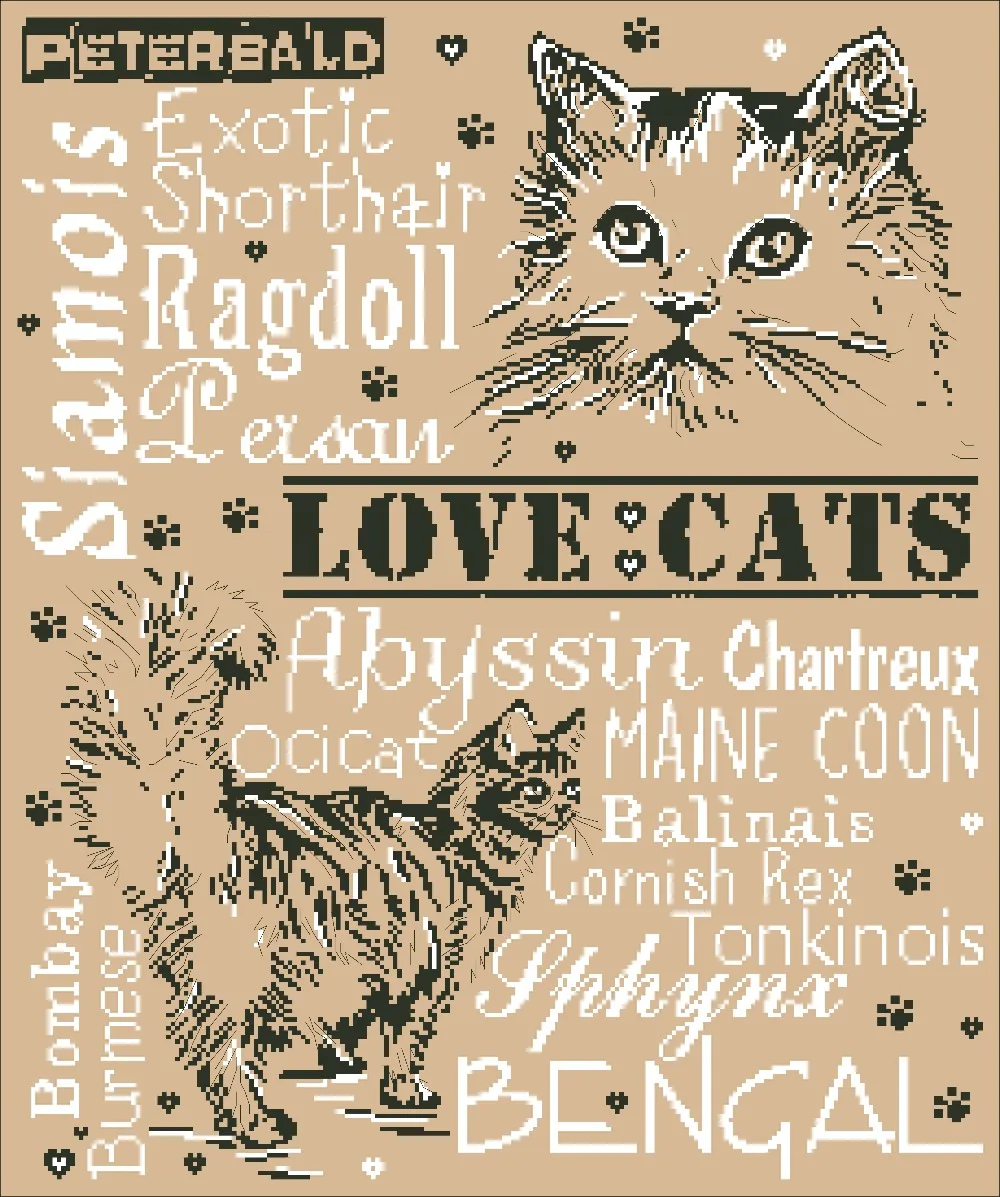 PETERBALD
Siamois
Exotic
Shorthair
Ragdoll
Persan
LOVE CATS
Abyssin
Chartreux
Ocicat
MAINE COON
Balinais
Cornish Rex
Tonkinois
Sphynx
Bombay
Burmese
BENGAL